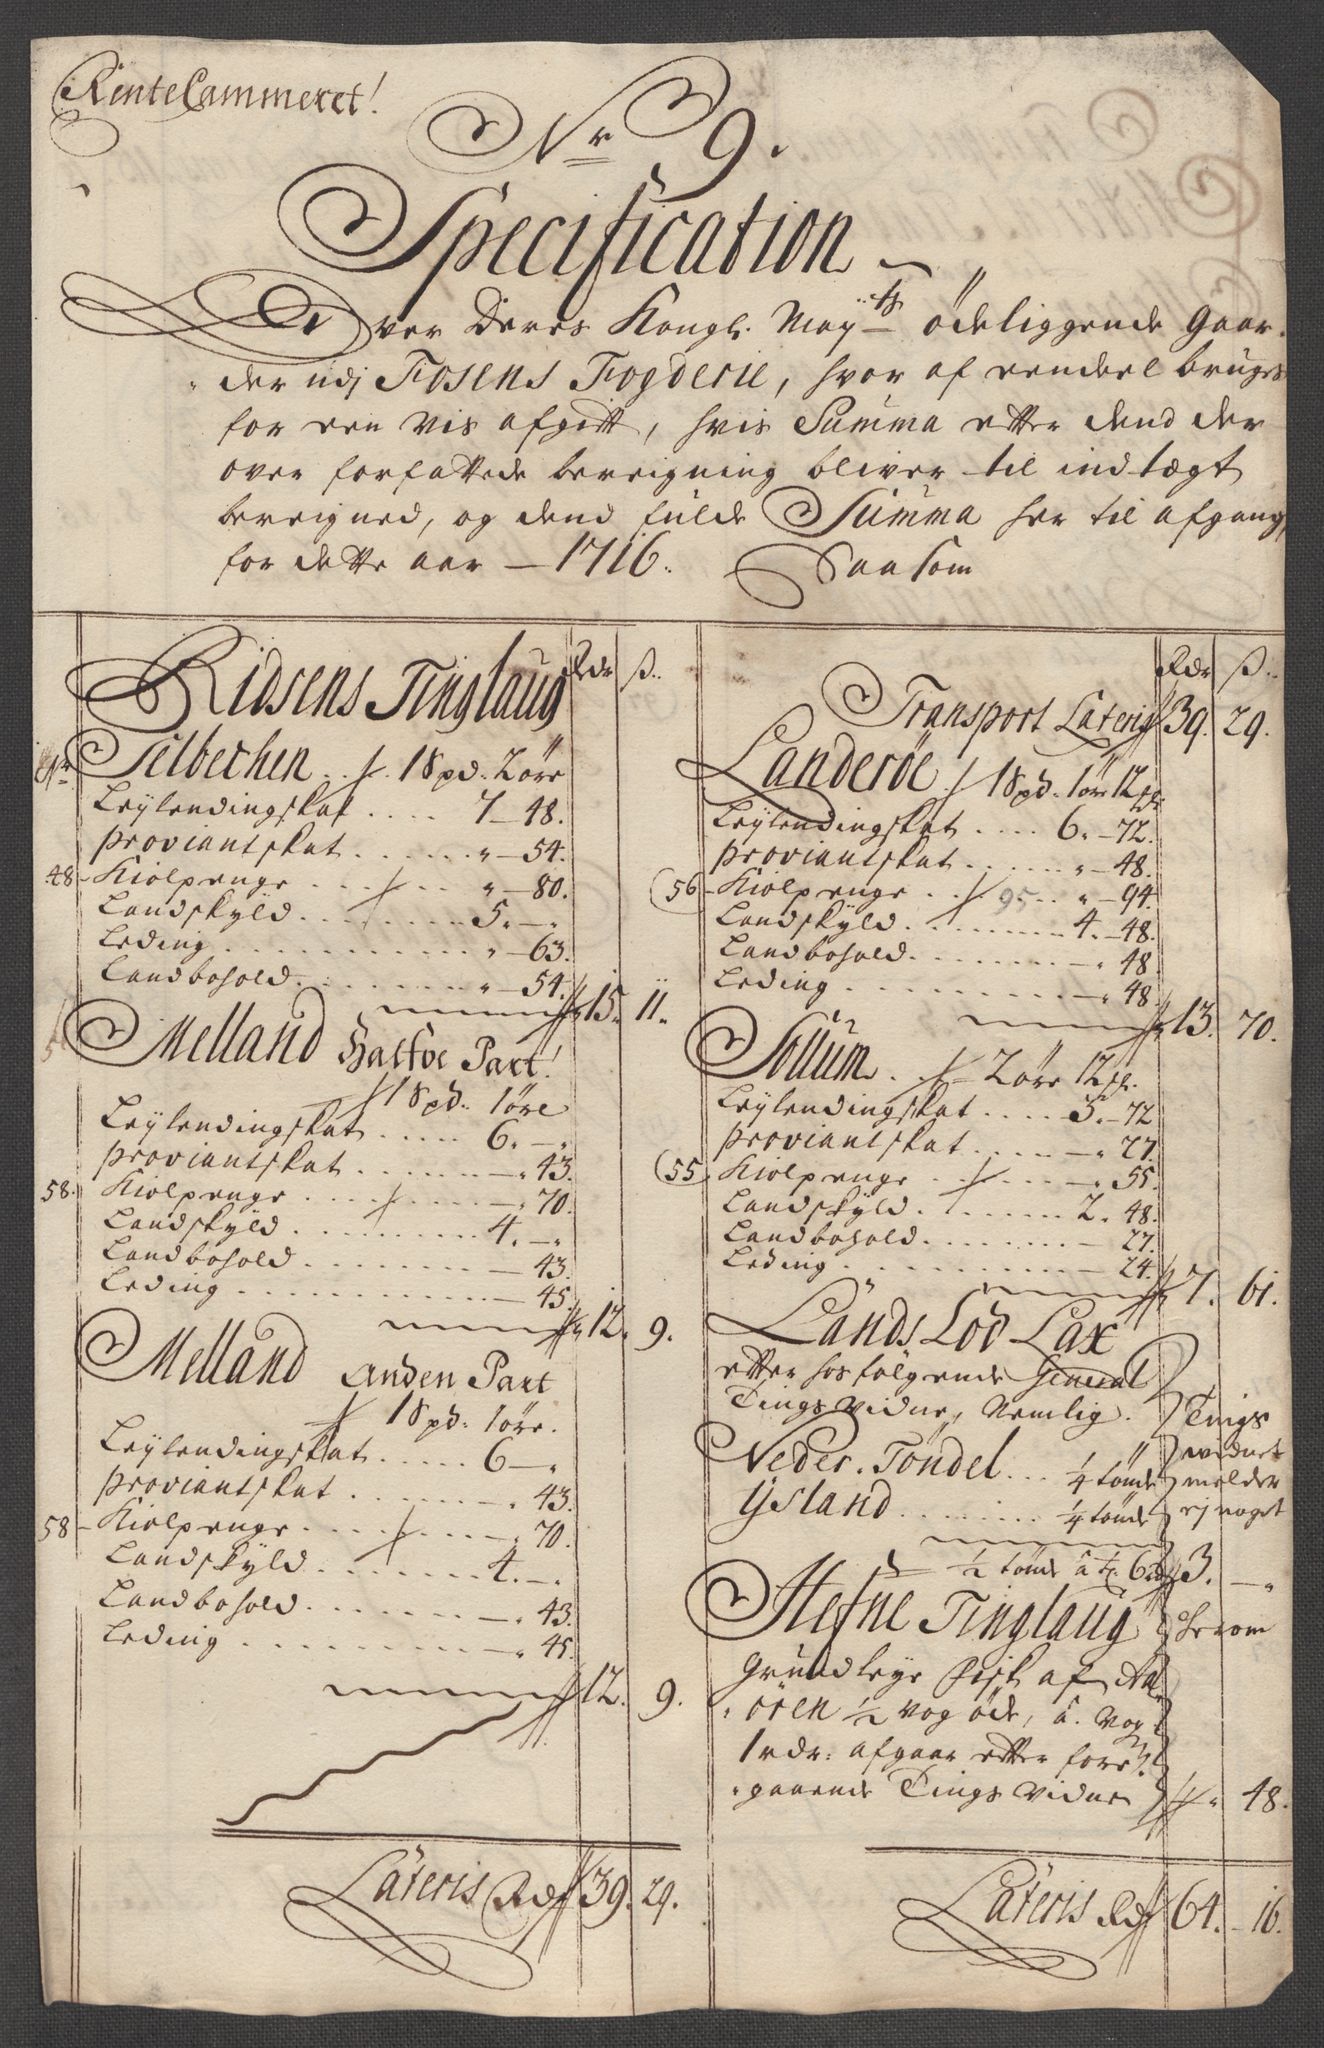 RenteCammeret!
Nr 9.
Specification
Over Deres Kongl: Mayts ödeliggende Gaar-
der udj Fosens Fogderie, hvor af eendeel bruges
for een vis afgift, hvis Summa efter dend der
over forfattede bereigning bliver til indtægt
bereigned, og dend fulde Summa her til afgang,
for dette aar - 1716. Saasom
Ridsens Tinglaug Rdr ß.
Selbechen 1 Spd. 2 öre
Leylendingskat .... 7 - 48.
Proviantskat ...... " - 54.
48 - Kiölpenge .... " - 80.
Landskyld ........ 5. - "
Leding ......... " - 63.
Landbohold ....... " - 54.
15. 11.
Melland Halfve Part!
1 Spd. 1 öre
Leylendingskat ..... 6. - "
Proviantskat ....... - " 43.
58. Kiölpenge ...... - " 70.
Landskyld ......... 4. - "
Landbohold ....... - 43.
Leding ......... - 45.
12. 9.
Melland Anden Part
1 Spd. 1 öre.
Leylendingskat ..... 6 - "
Proviantskat ....... - " 43.
58 - Kiölpenge ..... - " 70.
Landskyld ........ 4. - "
Landbohold ....... - " 43.
Leding ......... - " 45.
12. 9.
Lateris Rdr 39. 29.
Rdr ß.
Transport Lateris 39. 29.
Landeröe 1 Spd. 1 öre 12 sl:
Leylendingskat .... 6. - 72.
Proviantskat ...... " - 48.
56 - Kiölpenge .. 95 .. " - 94.
Landskyld ........ 4. - 48.
Landbohold ....... - " 48
Leding ......... - " 48.
13. 70.
Sollum 2 öre 12 sl.
Leylendingskat .... 3. - 72
Proviantskat ..... - " 27.
55 Kiölpenge ..... - " 55.
Landskyld ....... 2. 48.
Landbohold ....... - 27.
Leding ......... - 24.
7. 61.
Lands Lod Lax
efter hosfölgende General
Tings Vidne, Nemlig. Tings
Neder Töndel ... 1/4 tönde vidnet
melder
Ysland ....... 1/4 tönde ej noget
1/2 tönde á t: 6 rdr 3. - "
Hefne Tinglaug herom
Grundleye fisk af
ören 1/2 vog öde, á. Vog
1 rdr: afgaar efter fore-
gaaende Tings Vidne " 48.
Lateris Rdr 64. - 16.